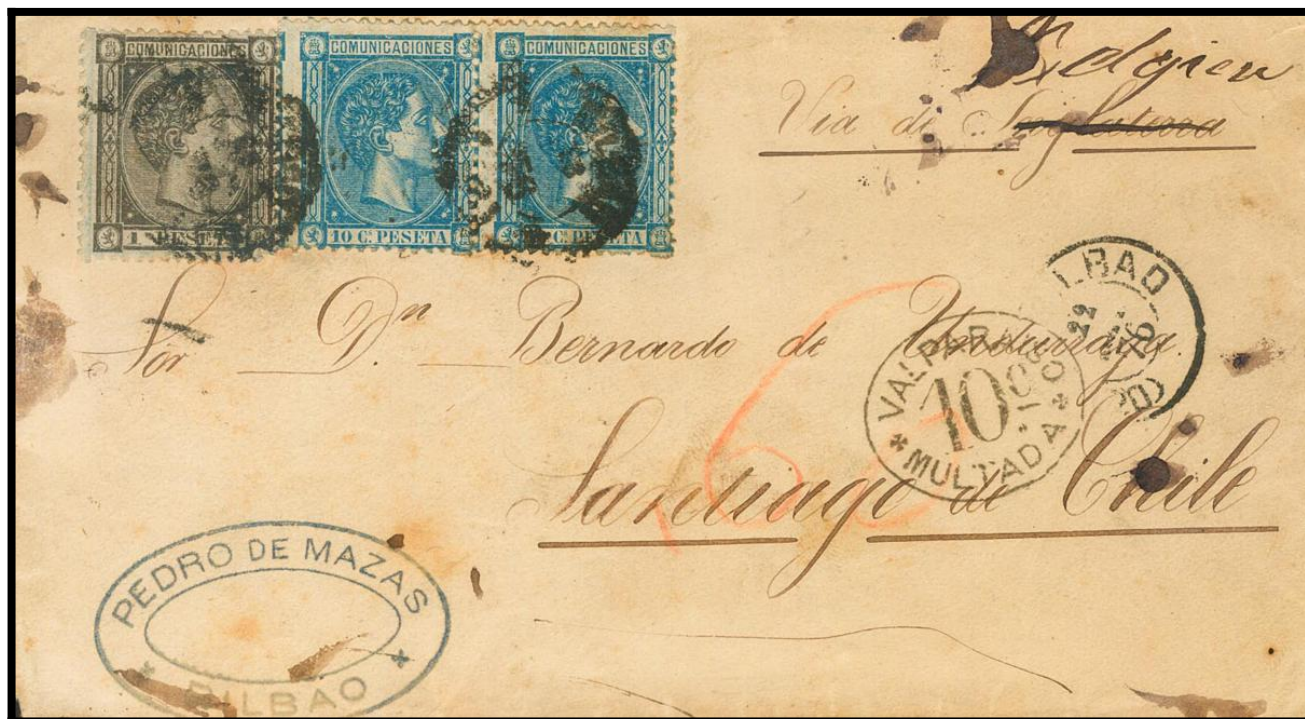 COMUNICACIONES
1 PESETA
COMUNICACIONES
10 C. PESETA
COMUNICACIONES
C. PESETA
Belgica
Via de Inglaterra
BILBAO
22
76
Sor Dn Bernardo de
VALPARAISO
10 CVOS
MULTADA
Santiago de Chile
PEDRO DE MAZAS
BILBAO